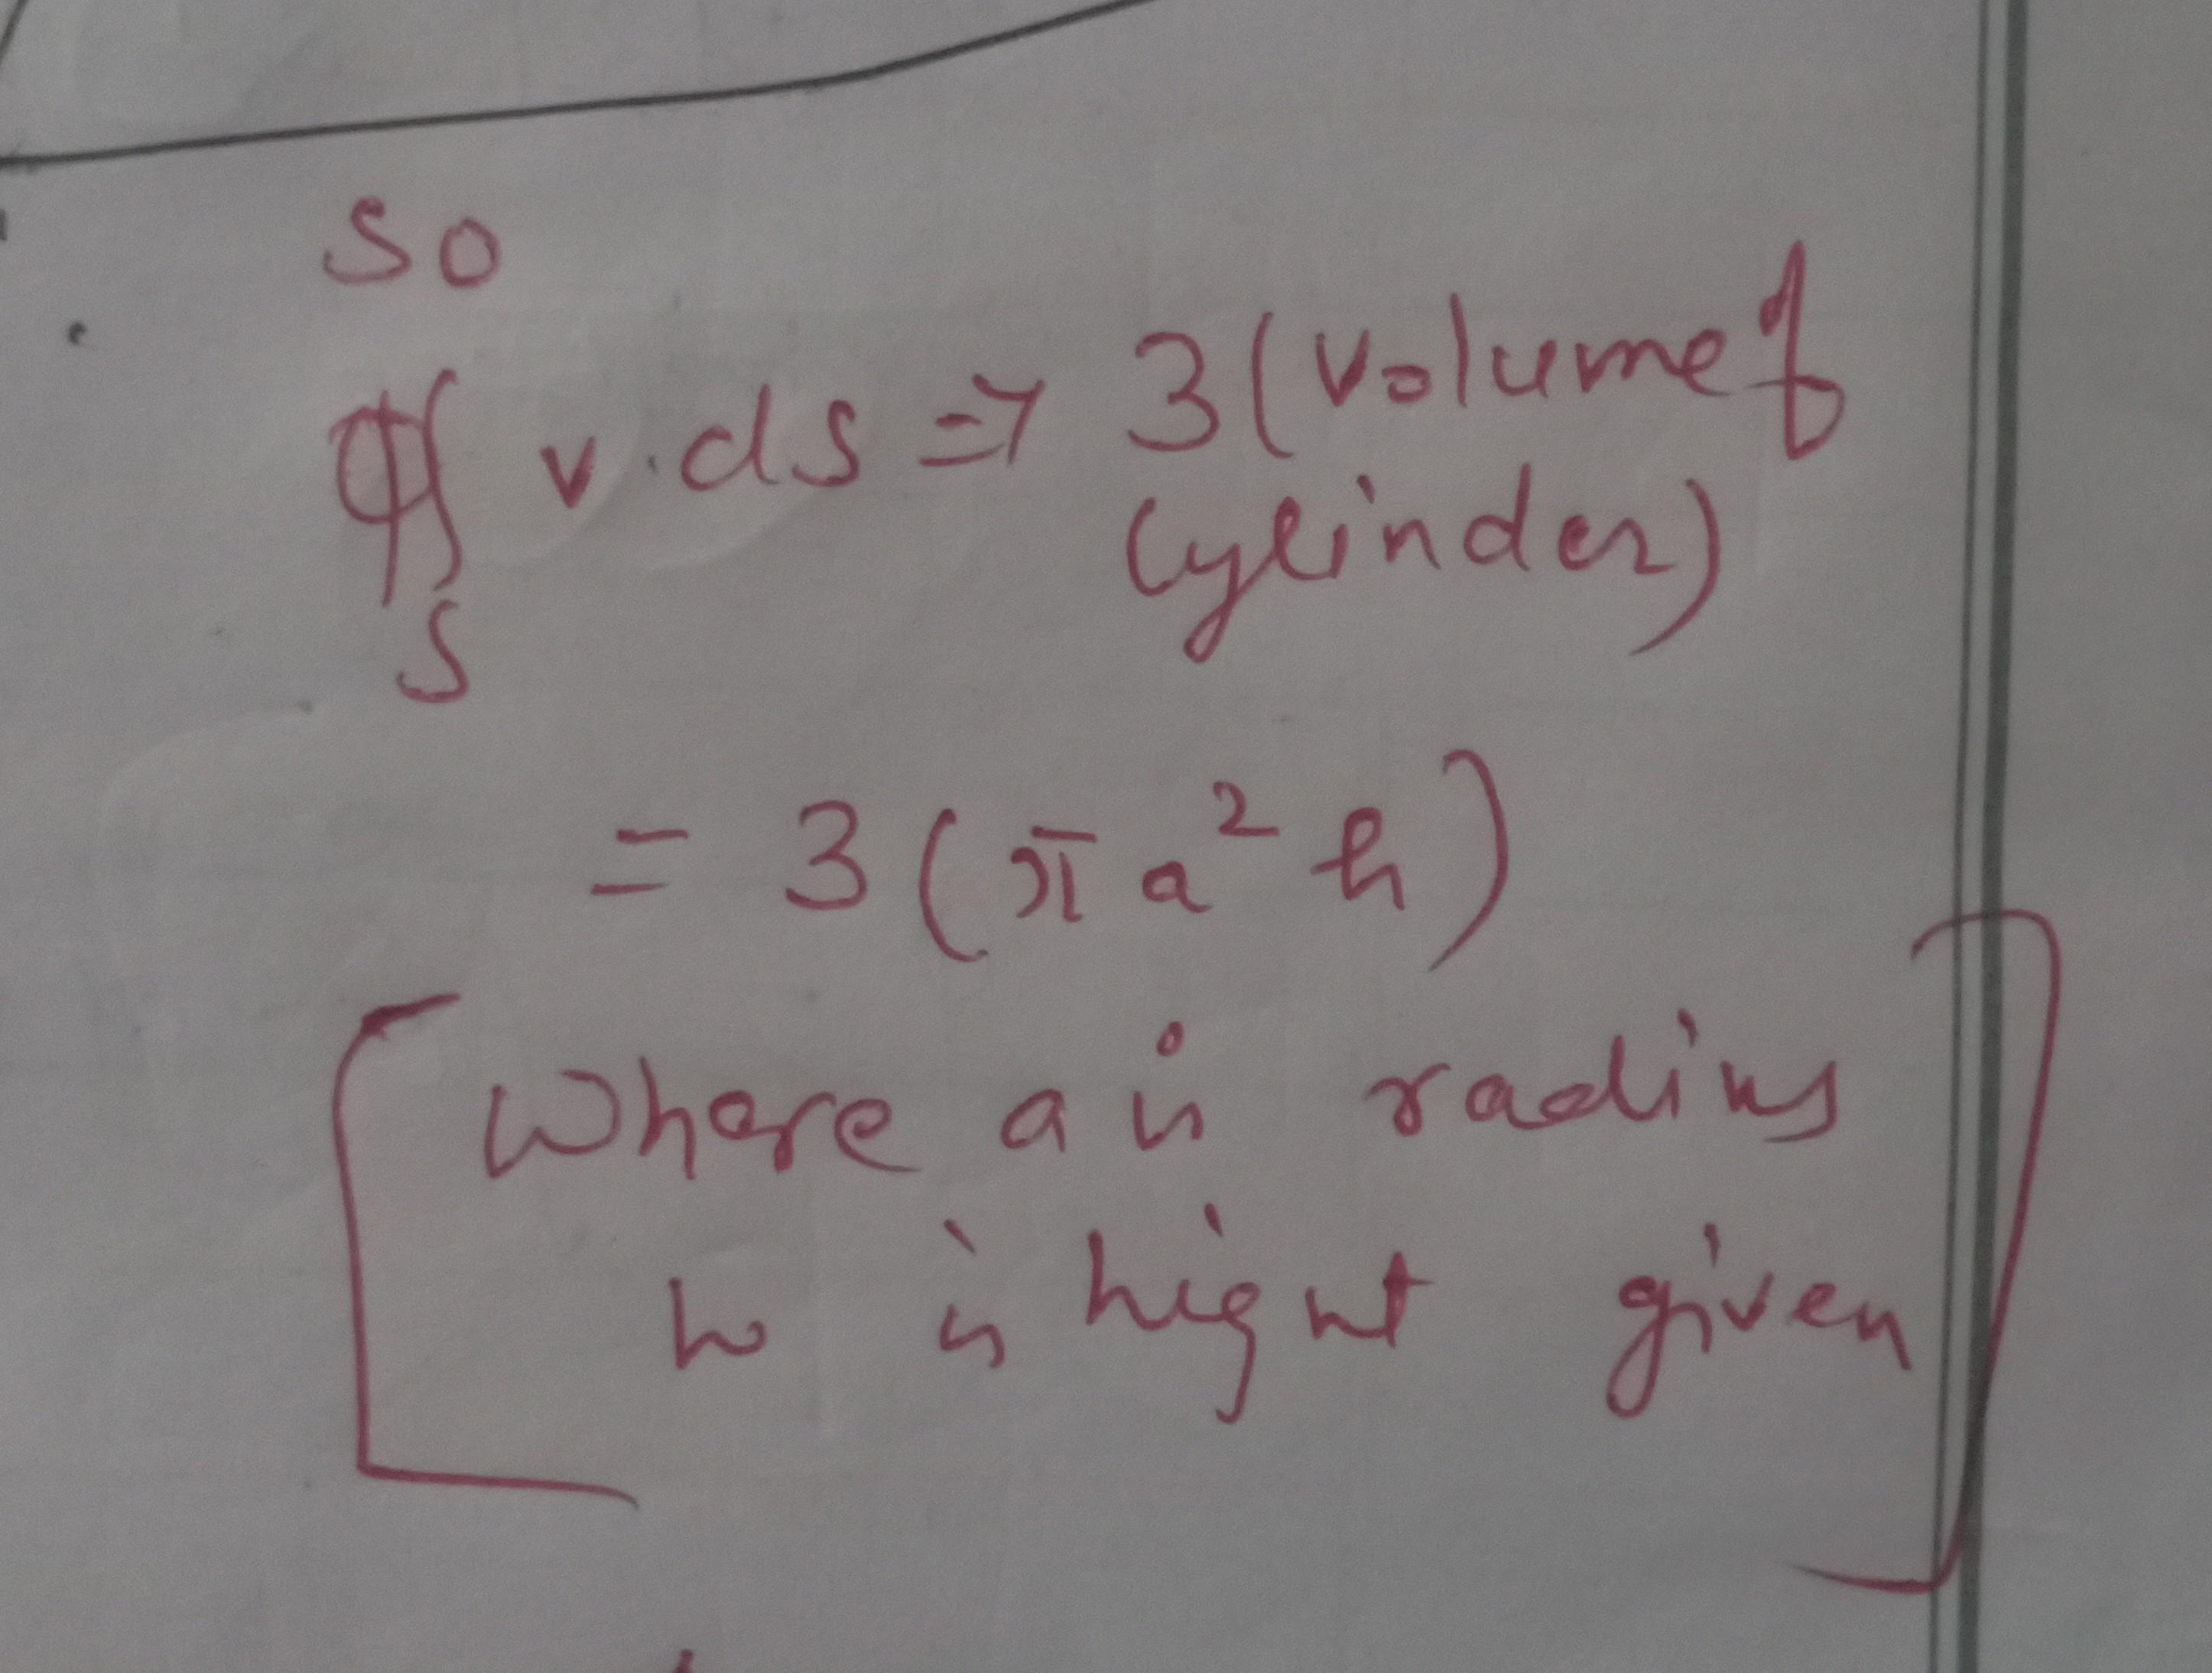 so
∯ v.ds => 3(volume of
S
cylinder)
= 3(πa²h)
where a is radius
h is hight given